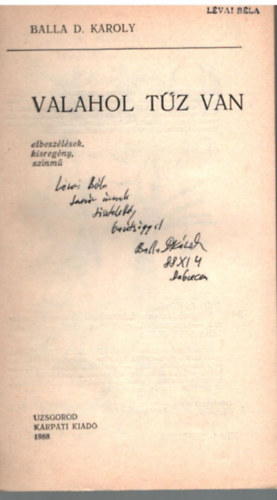 LÉVAI BÉLA
BALLA D. KÁROLY
VALAHOL TŰZ VAN
elbeszélések,
kisregény,
színmű
Lévai Béla
tanár úrnak
tisztelettel,
barátsággal
Balla D. Károly
88 XI 4
Debrecen
UZSGOROD
KÁRPÁTI KIADÓ
1988